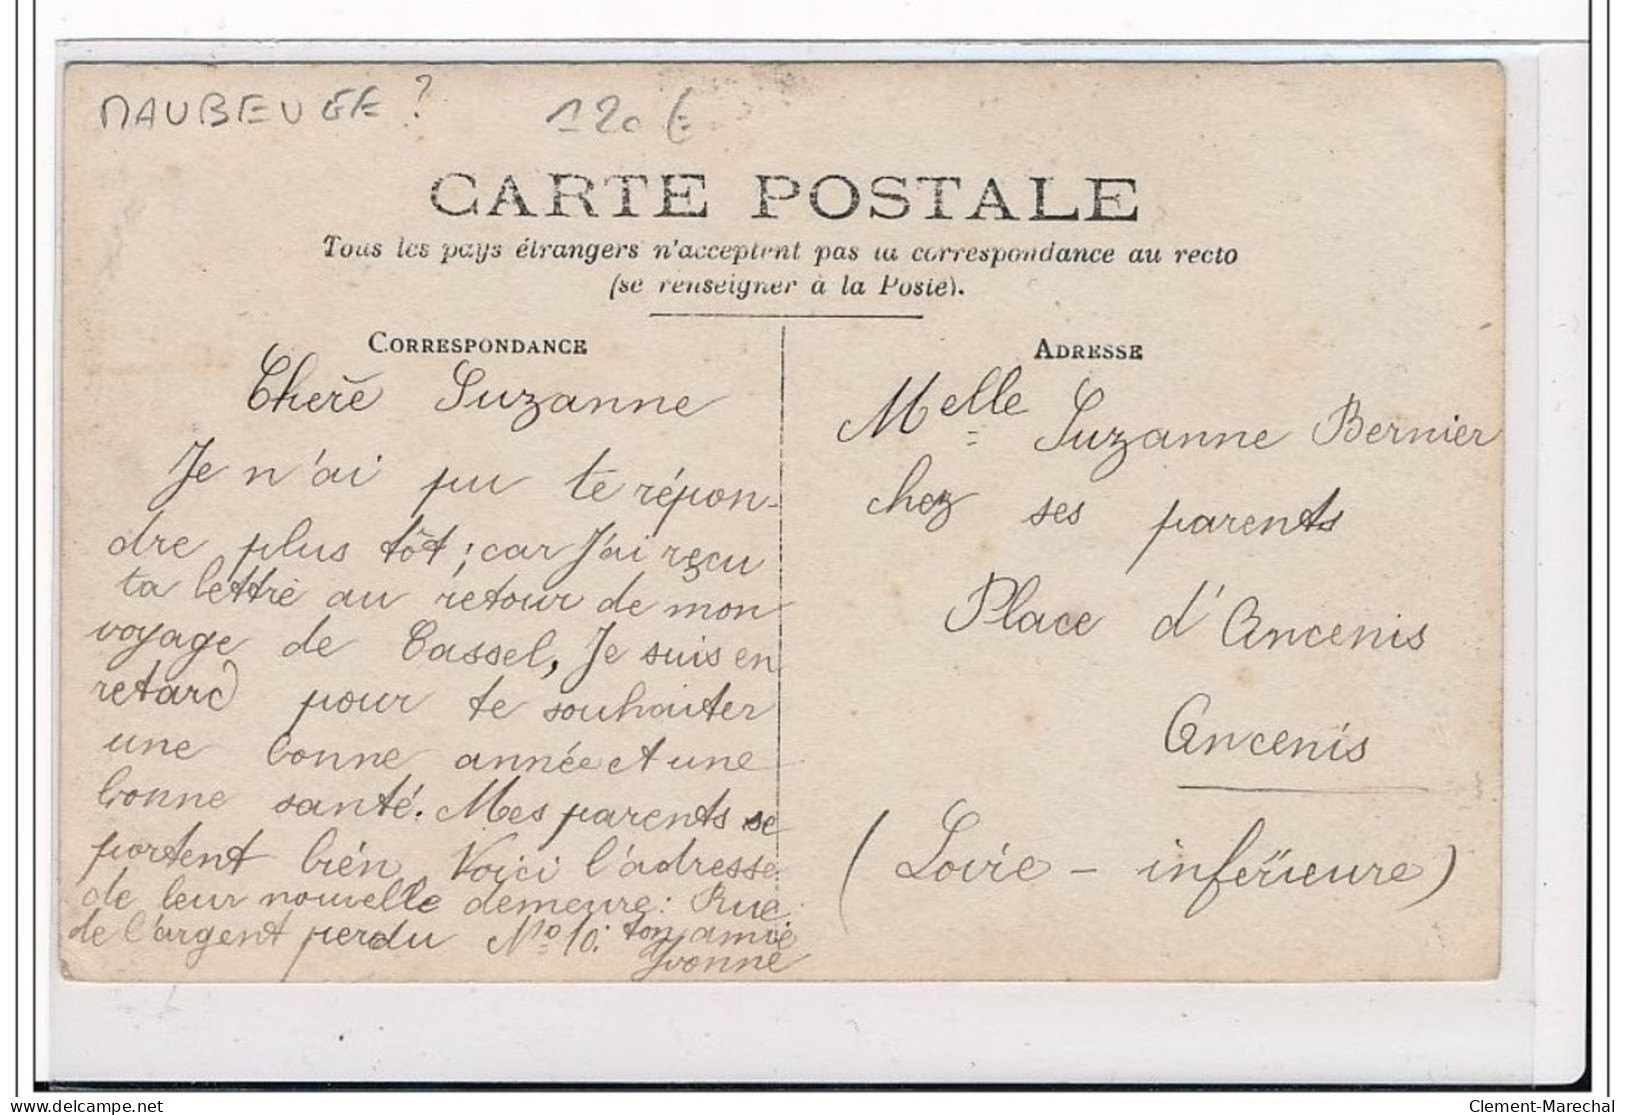 MAUBEUGE ? 120 €
CARTE POSTALE
Tous les pays étrangers n'acceptent pas la correspondance au recto
(se renseigner à la Poste).
CORRESPONDANCE
Chère Suzanne
Je n'ai pu te répon-
dre plus tôt; car J'ai reçu
ta lettre au retour de mon
voyage de Cassel, Je suis en
retard pour te souhaiter
une bonne année et une
bonne santé. Mes parents se
portent bien. Voici l'adresse
de leur nouvelle demeure: Rue
de l'argent perdu No 10. ton amie
Yvonne
ADRESSE
Melle Suzanne Bernier
chez ses parents
Place d'Ancenis
Ancenis
(Loire - inférieure)
delcampe.net
Clement-Marechal